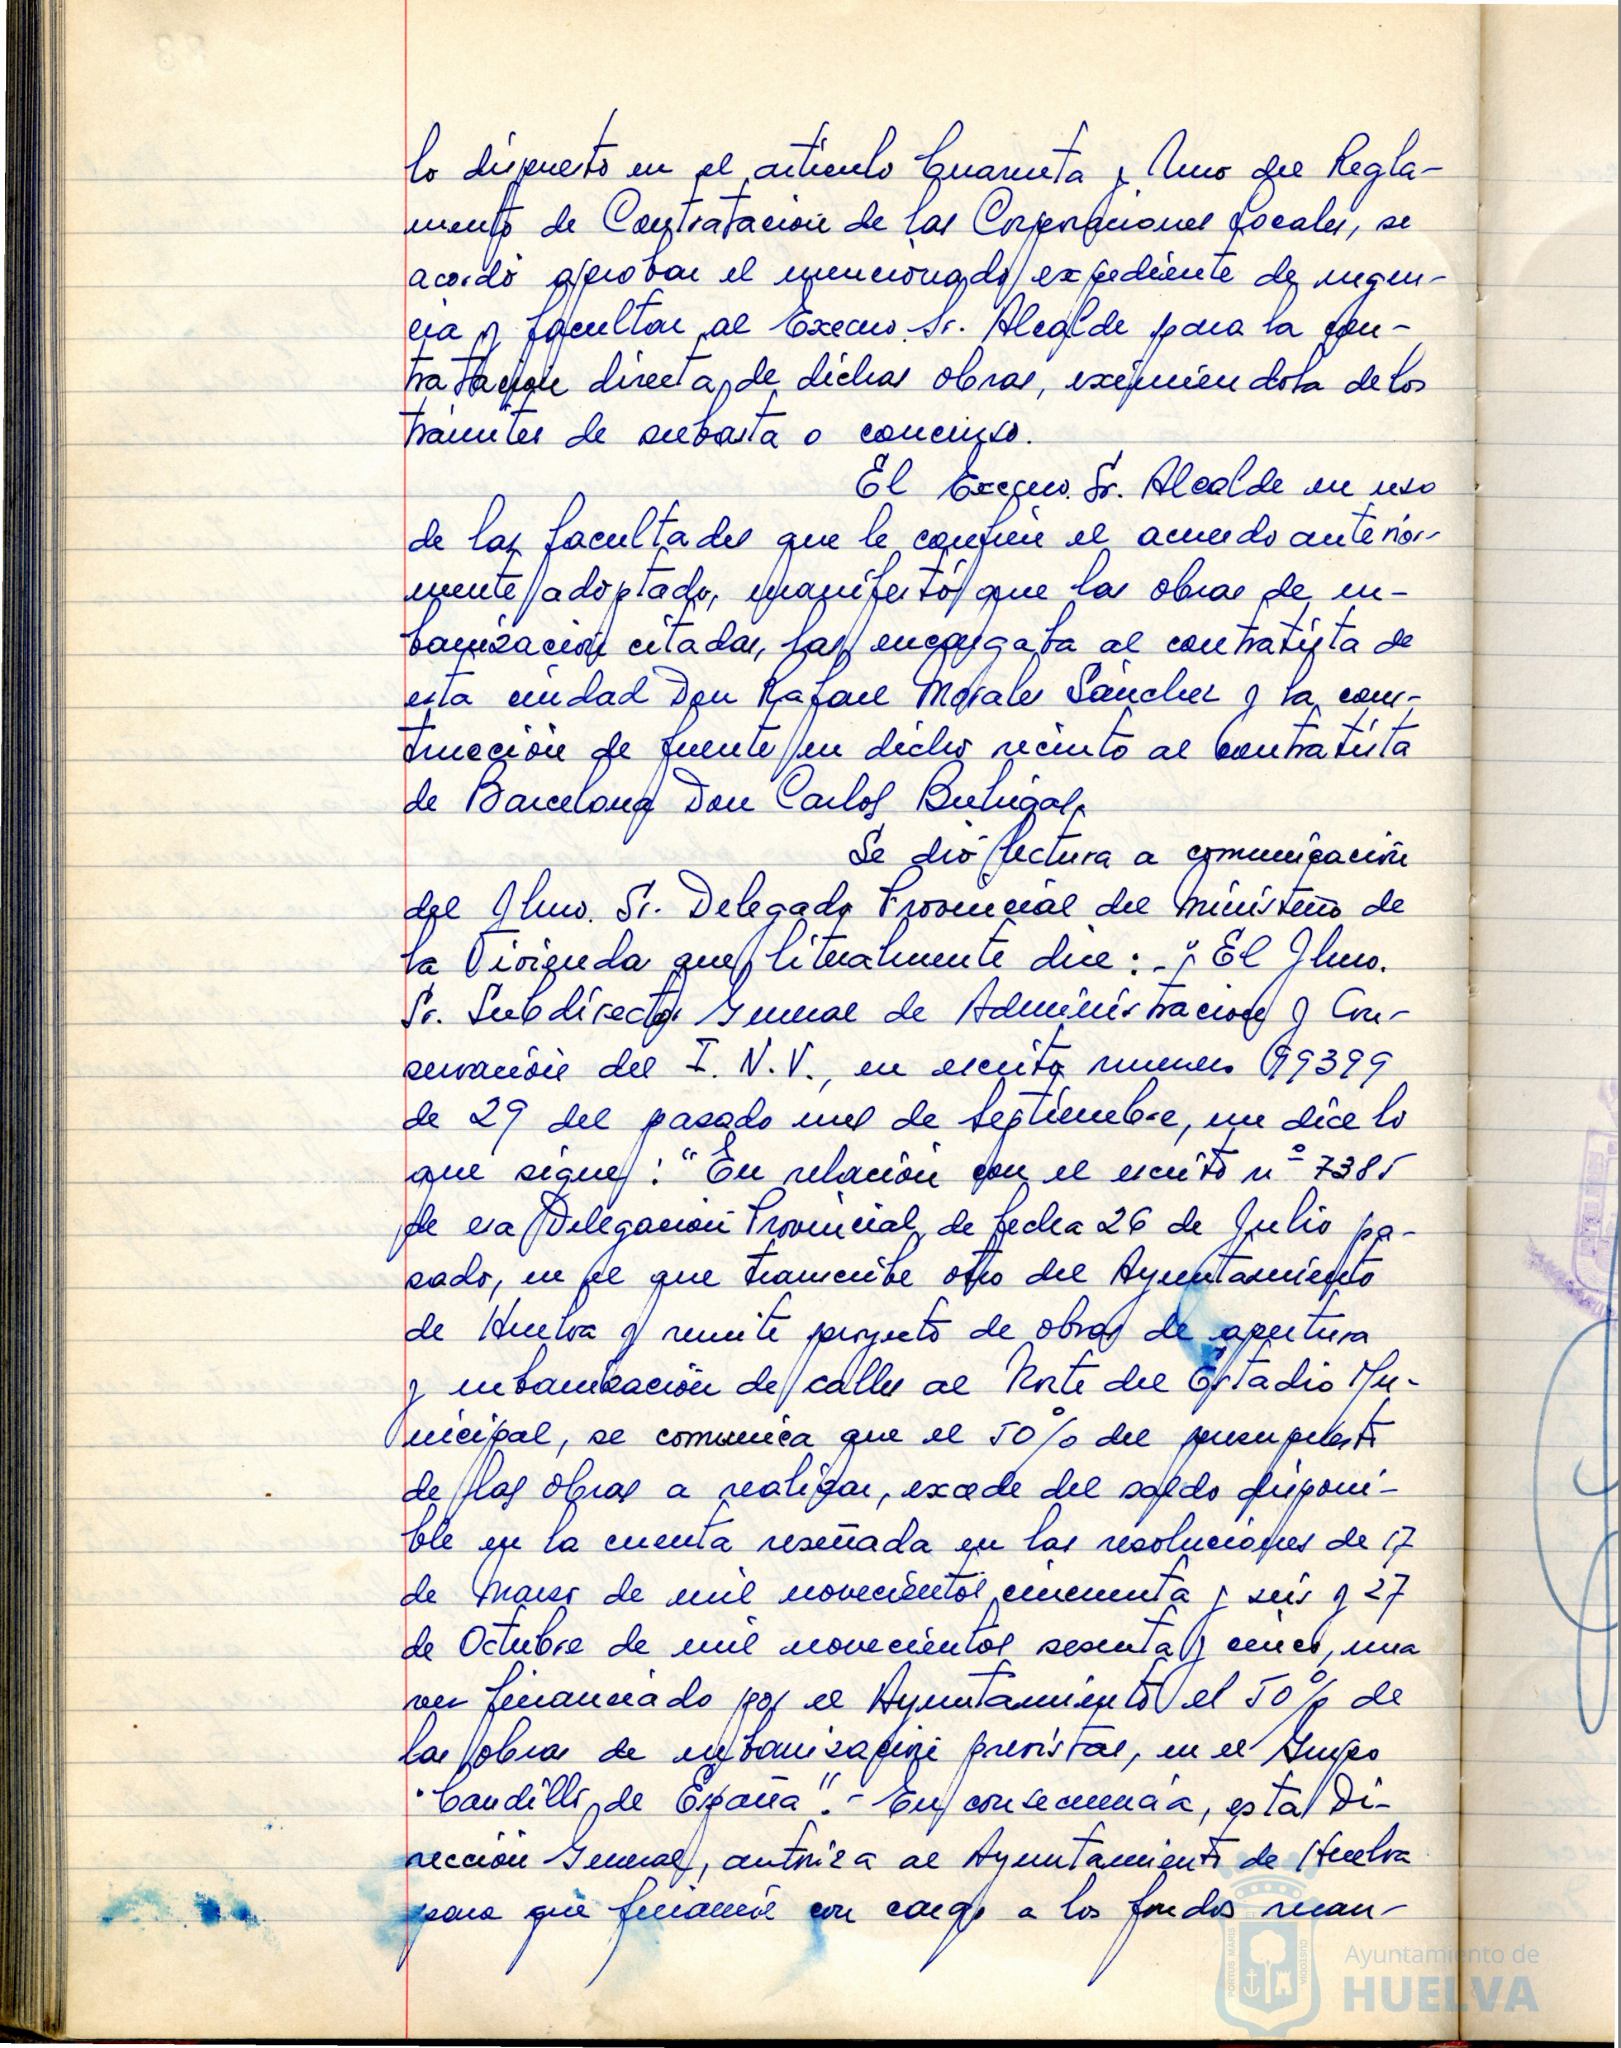 lo dispuesto en el artículo Cuarenta y Uno del Regla-
mento de Contratación de las Corporaciones Locales, se
acordó aprobar el mencionado expediente de urgen-
cia y facultar al Excmo. Sr. Alcalde para la con-
tratación directa de dichas obras, eximiéndola de los
trámites de subasta o concurso.
El Excmo. Sr. Alcalde en uso
de las facultades que le confiere el acuerdo anterior-
mente adoptado, manifestó que las obras de ur-
banización citadas, las encargaba al contratista de
esta ciudad Don Rafael Morales Sánchez y la cons-
trucción de fuente en dicho recinto al contratista
de Barcelona Don Carlos Buhigas.
Se dió lectura a comunicación
del Ilmo. Sr. Delegado Provincial del Ministerio de
la Vivienda que literalmente dice: - " El Ilmo.
Sr. Subdirector General de Administración y Con-
servación del I. N. V., en escrito número 99399
de 29 del pasado mes de Septiembre, me dice lo
que sigue: "En relación con el escrito nº 7385
de esa Delegación Provincial de fecha 26 de Julio pa-
sado, en el que transcribe otro del Ayuntamiento
de Huelva y remite proyecto de obras de apertura
y urbanización de calles al Norte del Estadio Mu-
nicipal, se comunica que el 50% del presupuesto
de las obras a realizar, excede del saldo disponi-
ble en la cuenta reseñada en las resoluciones de 17
de Marzo de mil novecientos cincuenta y seis y 27
de Octubre de mil novecientos sesenta y cinco, una
vez financiado por el Ayuntamiento el 50% de
las obras de urbanización previstas, en el Grupo
"Caudillo de España".- En consecuencia, esta Di-
rección General, autoriza al Ayuntamiento de Huelva
para que financie con cargo a los fondos reman-
Ayuntamiento de
HUELVA
PORTUS MARIS
CUSTODIA